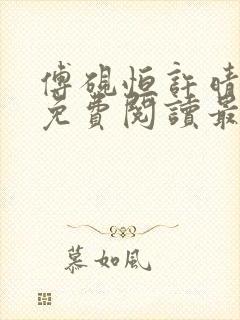 傅硯恒許晴
免費閱讀最
慕如風